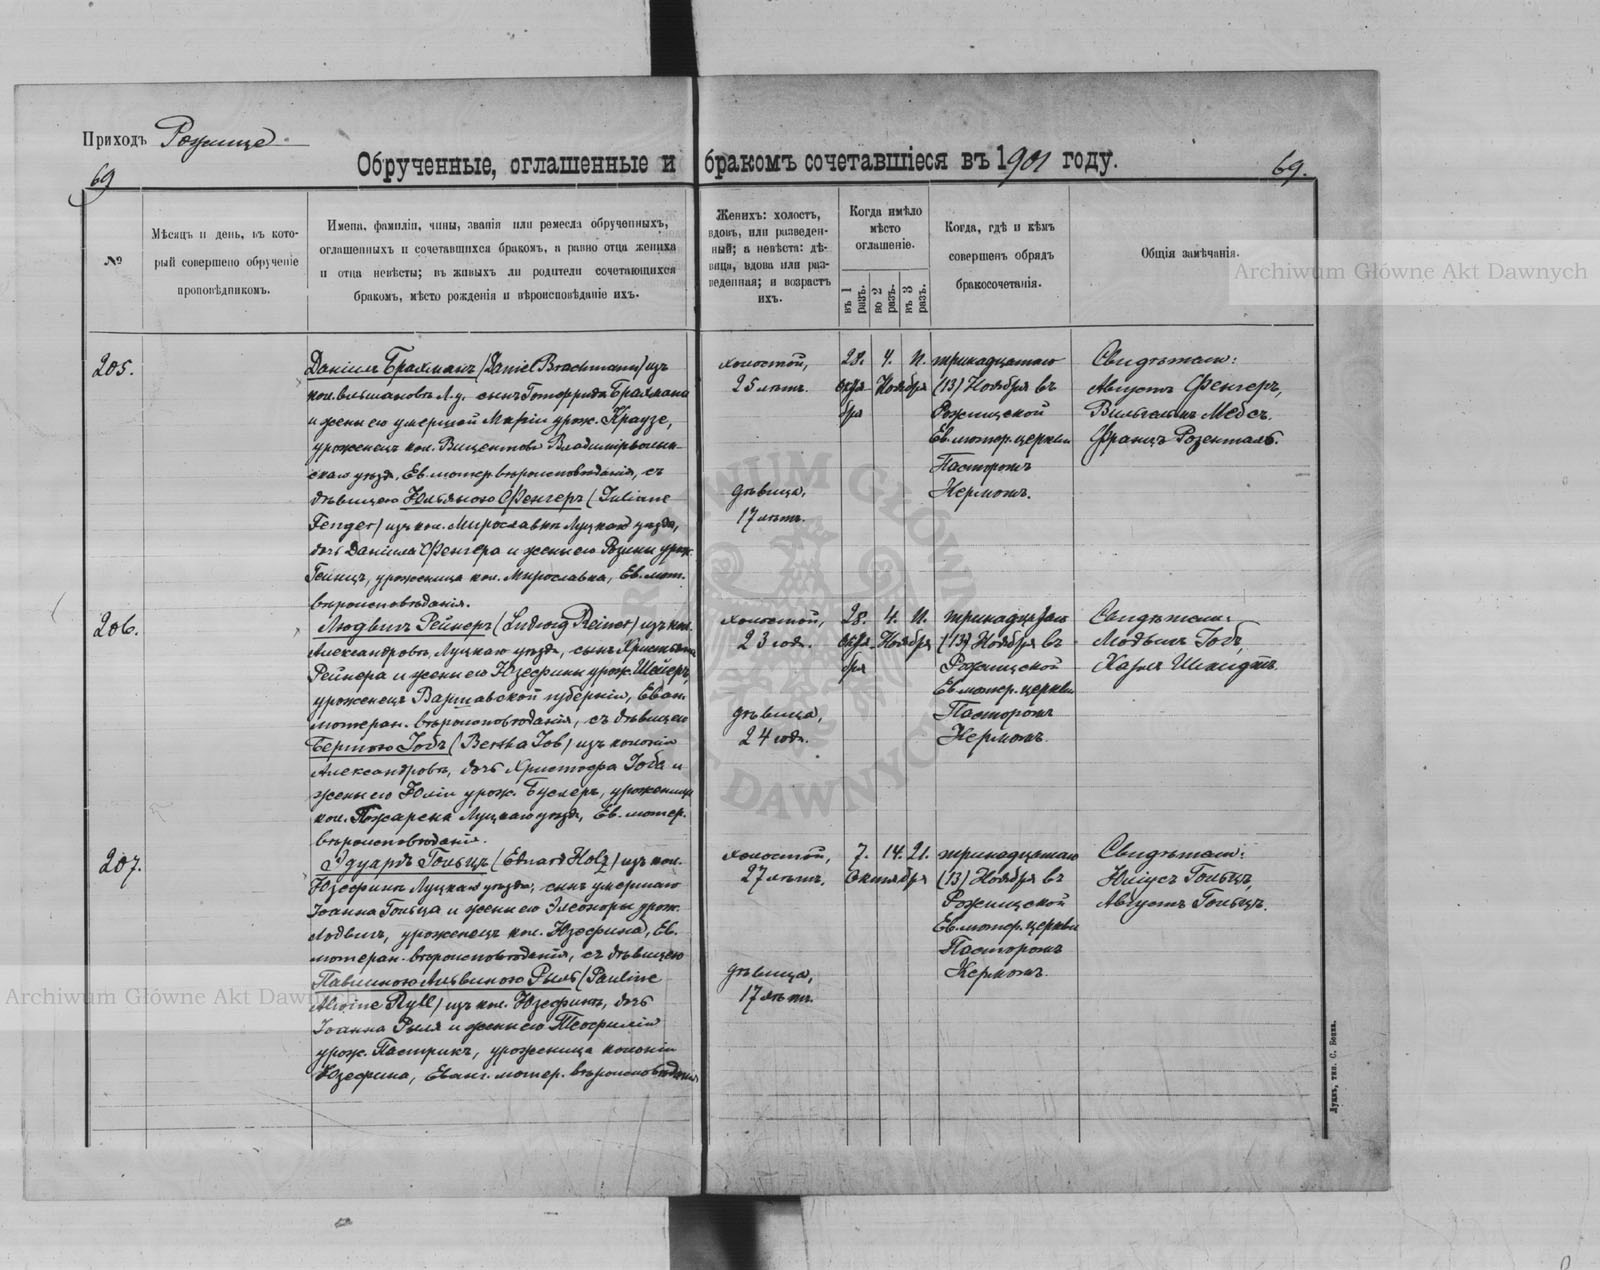 Приходъ Рожище
Обрученные, оглашенные и бракомъ сочетавшіеся въ 1901 году.
69
69.
№
Мѣсяцъ и день, въ кото-
рый совершено обрученіе
проповѣдникомъ.
Имена, фамиліи, чины, званія или ремесла обрученныхъ,
оглашенныхъ и сочетавшихся бракомъ, а равно отца жениха
и отца невѣсты; въ живыхъ ли родители сочетающихся
бракомъ, мѣсто рожденія и вѣроисповѣданіе ихъ.
Женихъ: холостъ,
вдовъ, или разведен-
ный; а невѣста: дѣ-
вица, вдова или раз-
веденная; и возрастъ
ихъ.
Когда имѣло
мѣсто
оглашеніе.
въ 1 разъ.
во 2 разъ.
въ 3 разъ.
Когда, гдѣ и кѣмъ
совершенъ обрядъ
бракосочетанія.
Общія замѣчанія.
205.
Даніилъ Брахманъ (Daniel Brachmann) изъ
сынъ Готфрида Брахмана
и жены его умершей Маріи урож. Краузе,
уроженецъ кол. Вицентовъ Владимірволын-
скаго уѣзда, Ев. лютер. вѣроисповѣданія, съ
дѣвицею Юльяною Фенгеръ (Juliane
Fenger) изъ кол. Мирославкѣ Луцкаго уѣзда,
дочь Даніила Фенгера и жены его Розины урож.
Гейнцъ, уроженица кол. Мирославка, Ев. лют.
вѣроисповѣданія.
холостой,
25 лѣтъ.
дѣвица,
17 лѣтъ.
28. 4. 11.
октя- Ноября
бря
тринадцатаго
(13) Ноября въ
Рожищской
Ев. лютер. церкви
Пасторомъ
Кермомъ.
Свидѣтели:
Августъ Фенгеръ,
Вильгельмъ Мебсъ.
Францъ Розенталь.
206.
Людвигъ Рейнеръ (Ludwig Reiner) изъ кол.
Александровкѣ, Луцкаго уѣзда, сынъ Христьяна
Рейнера и жены его Юзефины урож. Шейеръ,
уроженецъ Варшавской губерніи, Еван.
лютеран. вѣроисповѣданія, съ дѣвицею
Бертою Іобъ (Bertha Job) изъ колоніи
Александровкѣ, дочь Христофа Іоба и
жены его Юліи урож. Буслеръ, уроженица
кол. Пожарена Луцкаго уѣзда, Ев. лютер.
вѣроисповѣданія.
холостой,
23 года.
дѣвица,
24 года.
28. 4. 11.
октя- Ноября
бря
тринадцатаго
(13) Ноября въ
Рожищской
Ев. лютер. церкви
Пасторомъ
Кермомъ.
Свидѣтели:
Іобъ,
Карлъ Шмидтъ.
207.
Эдуардъ Гольцъ (Eduard Holz) изъ кол.
Юзефинъ Луцкаго уѣзда, сынъ умершаго
Іоанна Гольца и жены его Элеоноры урож.
Людвигъ, уроженецъ кол. Юзефина, Ев.
лютеран. вѣроисповѣданія, съ дѣвицею
Павлиною Альвиною Рыль (Pauline
Alwine Ryll) изъ кол. Юзефинъ, дочь
Іоанна Рыля и жены его Теофиліи
урож. Пастрикъ, уроженица колоніи
Юзефина, Еванг. лютер. вѣроисповѣданія
холостой,
27 лѣтъ,
дѣвица,
17 лѣтъ.
7. 14. 21.
Октября
тринадцатаго
(13) Ноября въ
Рожищской
Ев. лютер. церкви
Пасторомъ
Кермомъ.
Свидѣтели:
Юліусъ Гольцъ,
Августъ Гольцъ.
Луцкъ, тип. С. Бонка.
Archiwum Główne Akt Dawnych
Archiwum Główne Akt Dawnych
ARCHIWUM GŁÓWNE AKT DAWNYCH